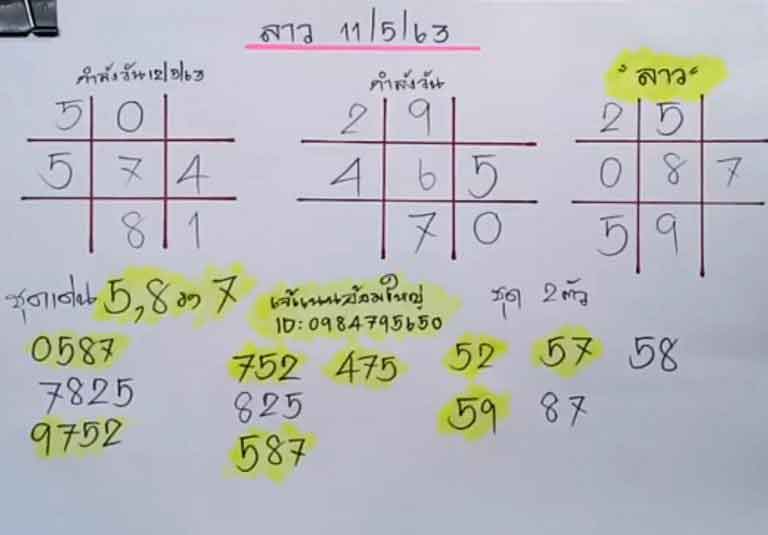 ลาว 11/5/63
กำลังวัน 12/5/63
5 0
5 7 4
8 1
กำลังวัน
2 9
4 6 5
7 0
"ลาว"
2 5
0 8 7
5 9
ชุดเด่น 5,8 7
0587
7825
9752
ใหญ่
ID: 0984795650
752 475
825
587
ชุด 2 ตัว
52 57 58
59 87